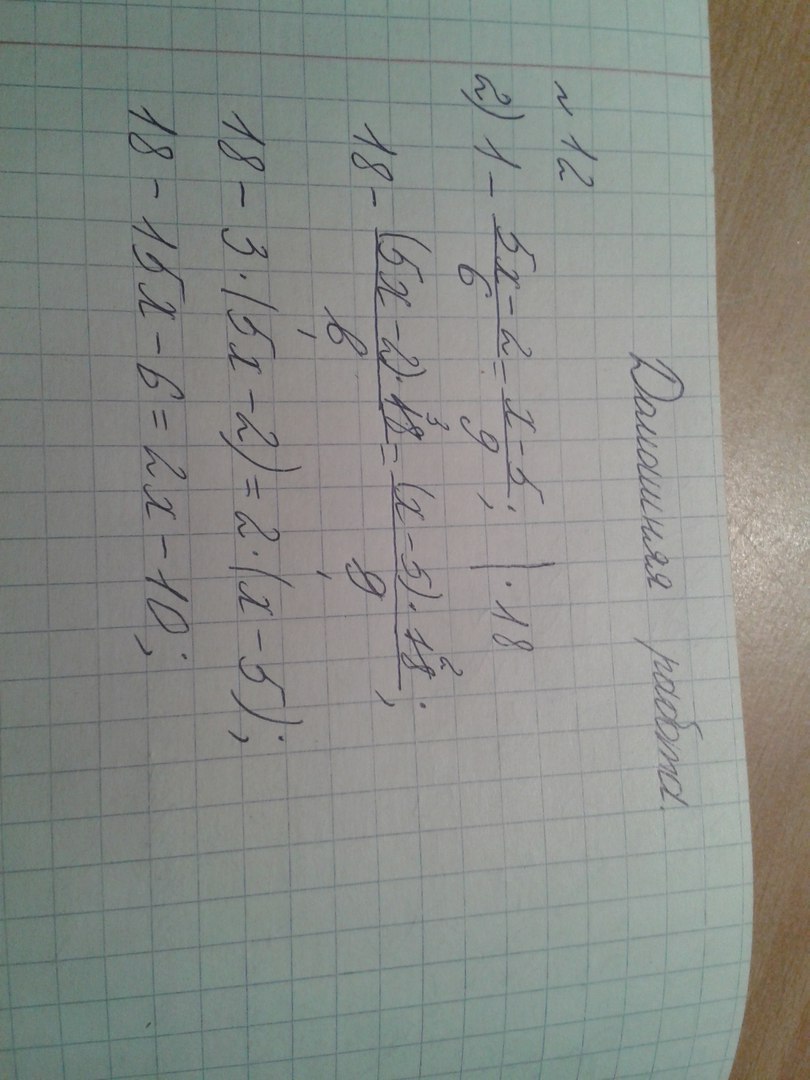 Домашняя работа.
№ 12
2) 1 - (5x-2)/6 = (x-5)/9; | · 18
18 - ((5x-2)·18³)/6 = ((x-5)·18²)/9;
18 - 3·(5x-2) = 2·(x-5);
18 - 15x - 6 = 2x - 10;